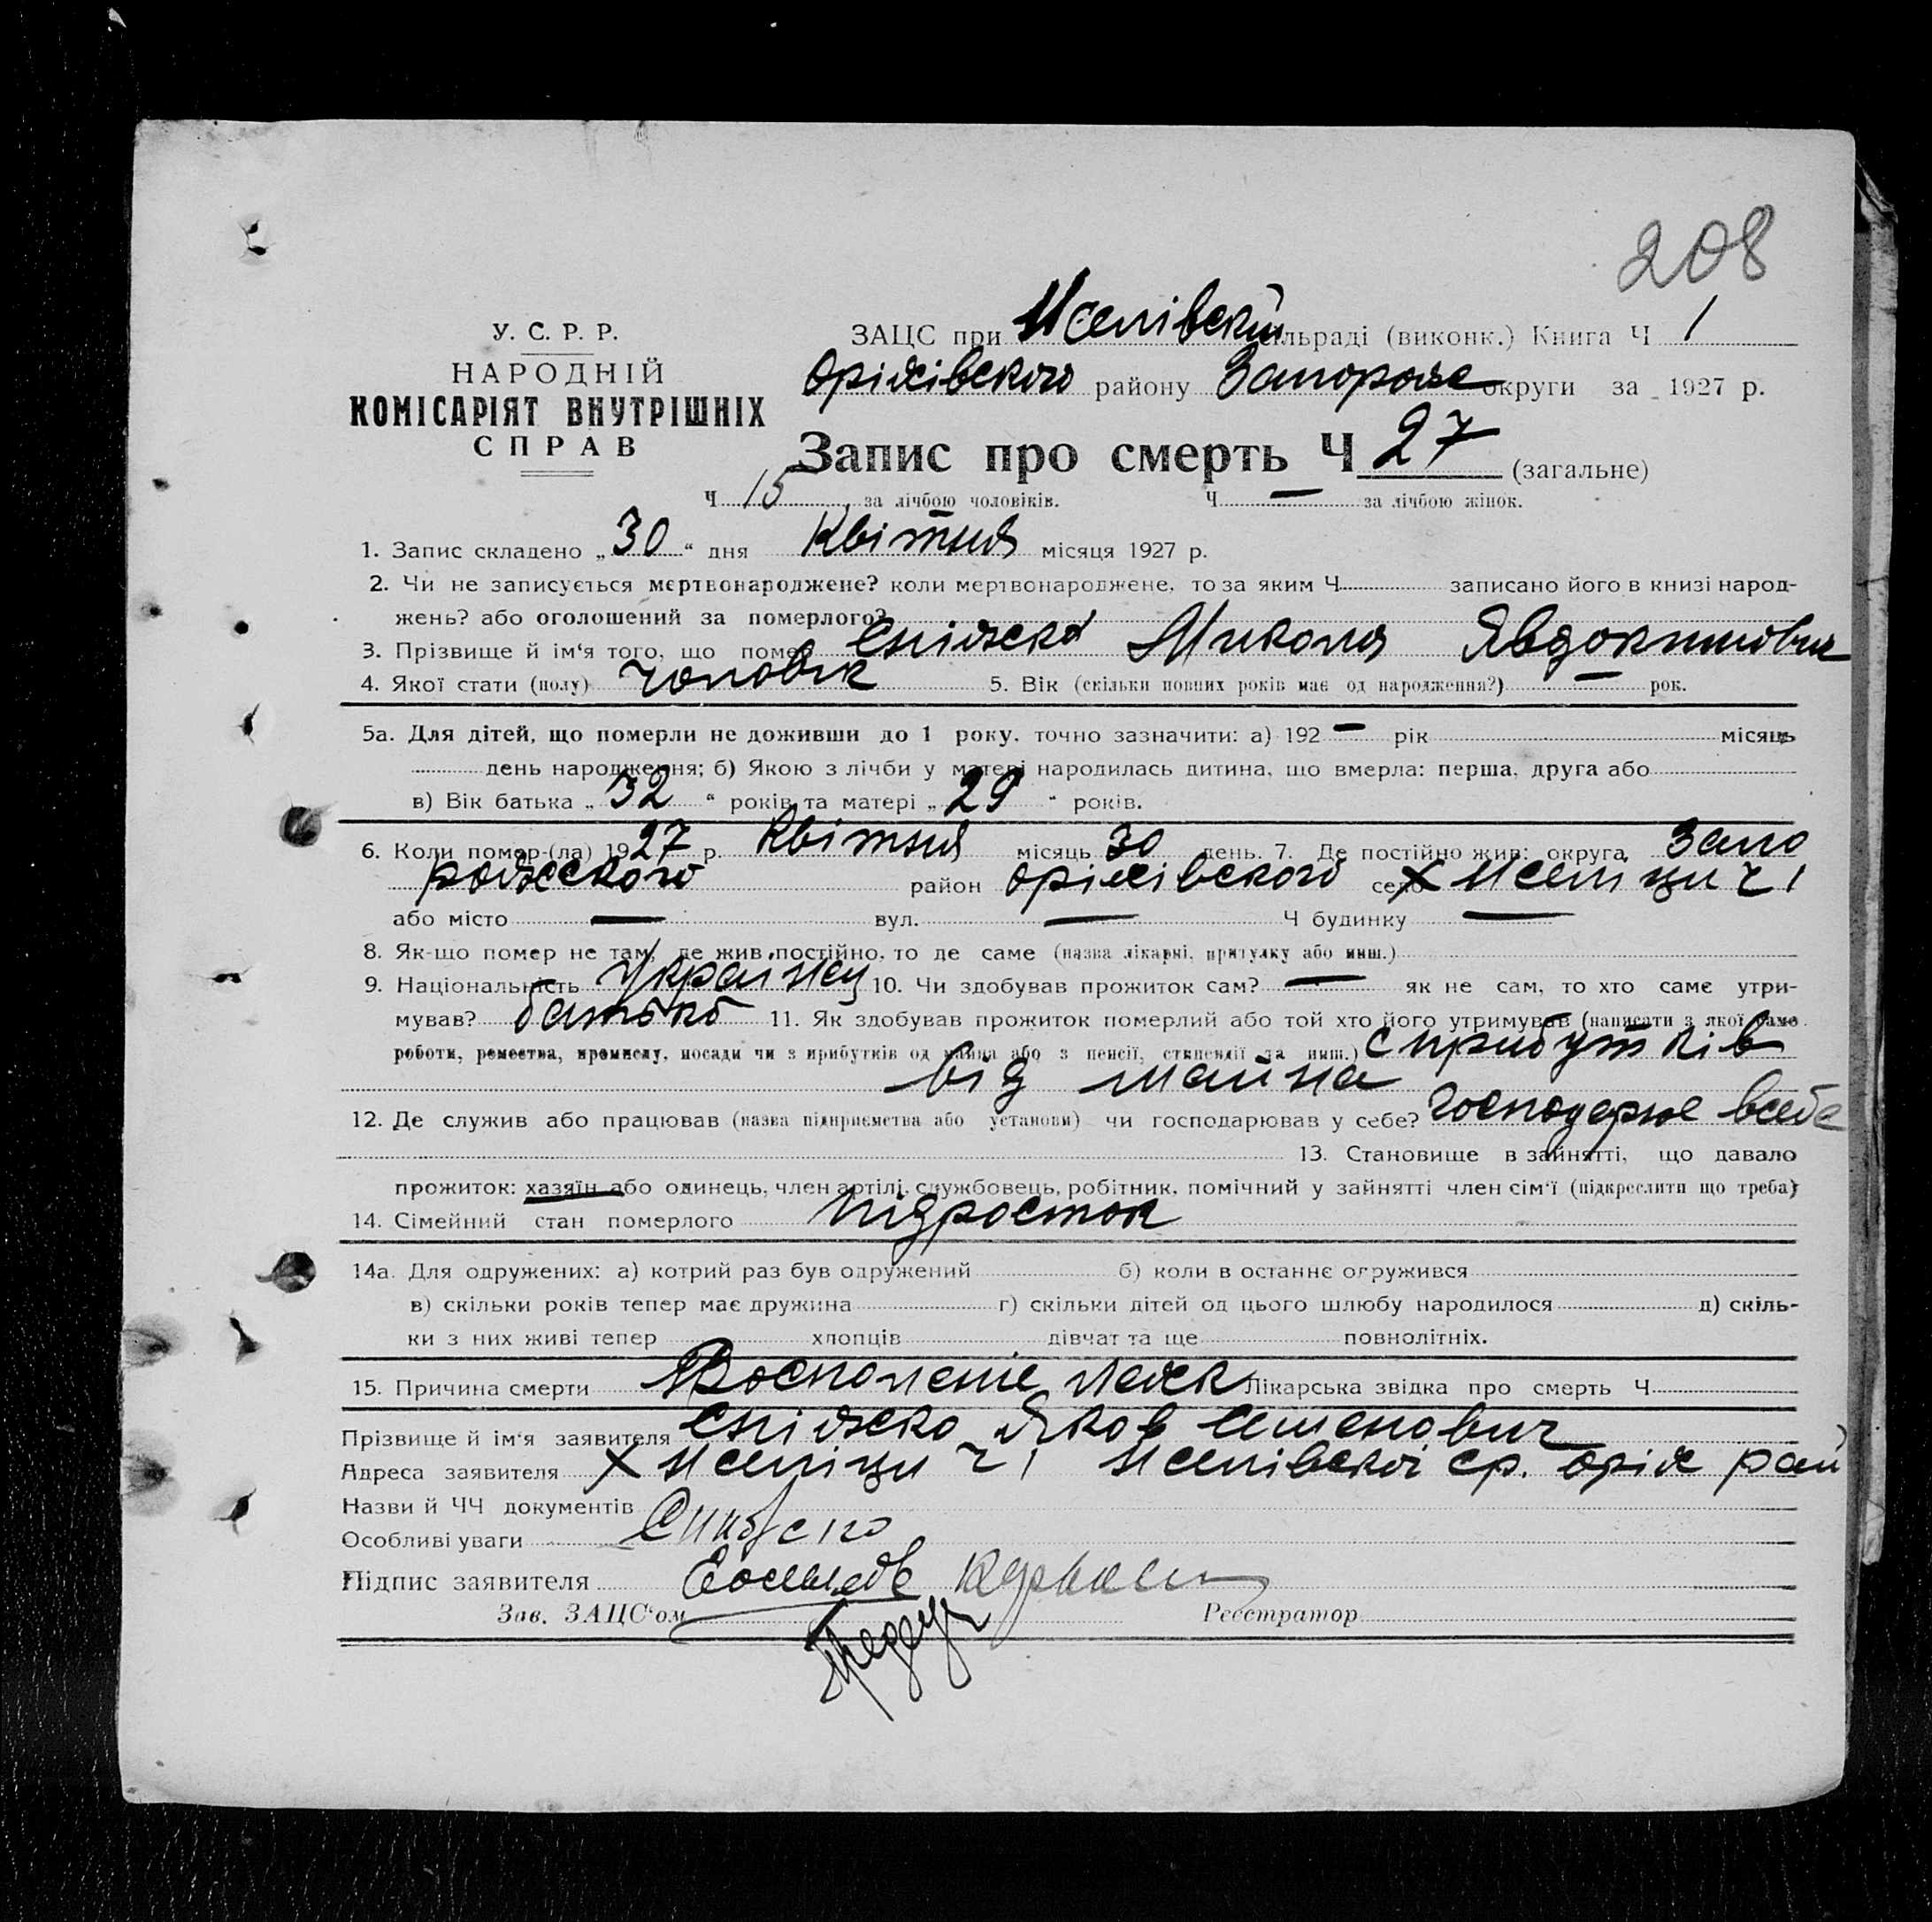 208
У. С. Р. Р.
НАРОДНІЙ
КОМІСАРІЯТ ВНУТРІШНІХ
СПРАВ
ЗАЦС при льраді (виконк.) Книга Ч 1
Оріхівского району Запорозьс округи за 1927 р.
Запис про смерть Ч 27 (загальне)
Ч 15 за лічбою чоловіків. Ч — за лічбою жінок.
1. Запис складено „30“ дня Квітня місяця 1927 р.
2. Чи не записується мертвонароджене? коли мертвонароджене, то за яким Ч записано його в книзі народ-
жень? або оголошений за померлого?
3. Прізвище й ім'я того, що помер Микола Явдокимович
4. Якої стати (полу) чоловік 5. Вік (скільки повних років має од народження?) — рок.
5а. Для дітей, що померли не доживши до 1 року, точно зазначити: а) 192 — рік місяць
день народження; б) Якою з лічби у матері народилась дитина, що вмерла: перша, друга або
в) Вік батька „32“ років та матері „29“ років.
6. Коли помер-(ла) 1927 р. Квітня місяць 30 день. 7. Де постійно жив: округа Запо
рожского район Оріхівского село
або місто — вул. — Ч будинку —
8. Як-що помер не там, де жив постійно, то де саме (назва лікарні, притулку або инш.)
9. Національність Українец 10. Чи здобував прожиток сам? — як не сам, то хто саме утри-
мував? батько 11. Як здобував прожиток померлий або той хто його утримував (написати з якої саме
роботи, ремества, промислу, посади чи з прибутків од майна або з пенсії, стипендії та инш.) с прибутків
від майна
12. Де служив або працював (назва підприємства або установи) чи господарював у себе? господарює всебе
13. Становище в зайнятті, що давало
прожиток: хазяїн або одинець, член артілі, службовець, робітник, помічний у зайнятті член сім'ї (підкреслити що треба)
14. Сімейний стан померлого підросток
14а. Для одружених: а) котрий раз був одружений б) коли в останнє огружився
в) скільки років тепер має дружина г) скільки дітей од цього шлюбу народилося д) скіль-
ки з них живі тепер хлопців дівчат та ще повнолітніх.
15. Причина смерти Восполение легк Лікарська звідка про смерть Ч
Прізвище й ім'я заявителя Яков Семенович
Адреса заявителя ср. Оріх рай
Назви й ЧЧ документів
Особливі уваги
Підпис заявителя
Зав. ЗАЦС'ом Реєстратор